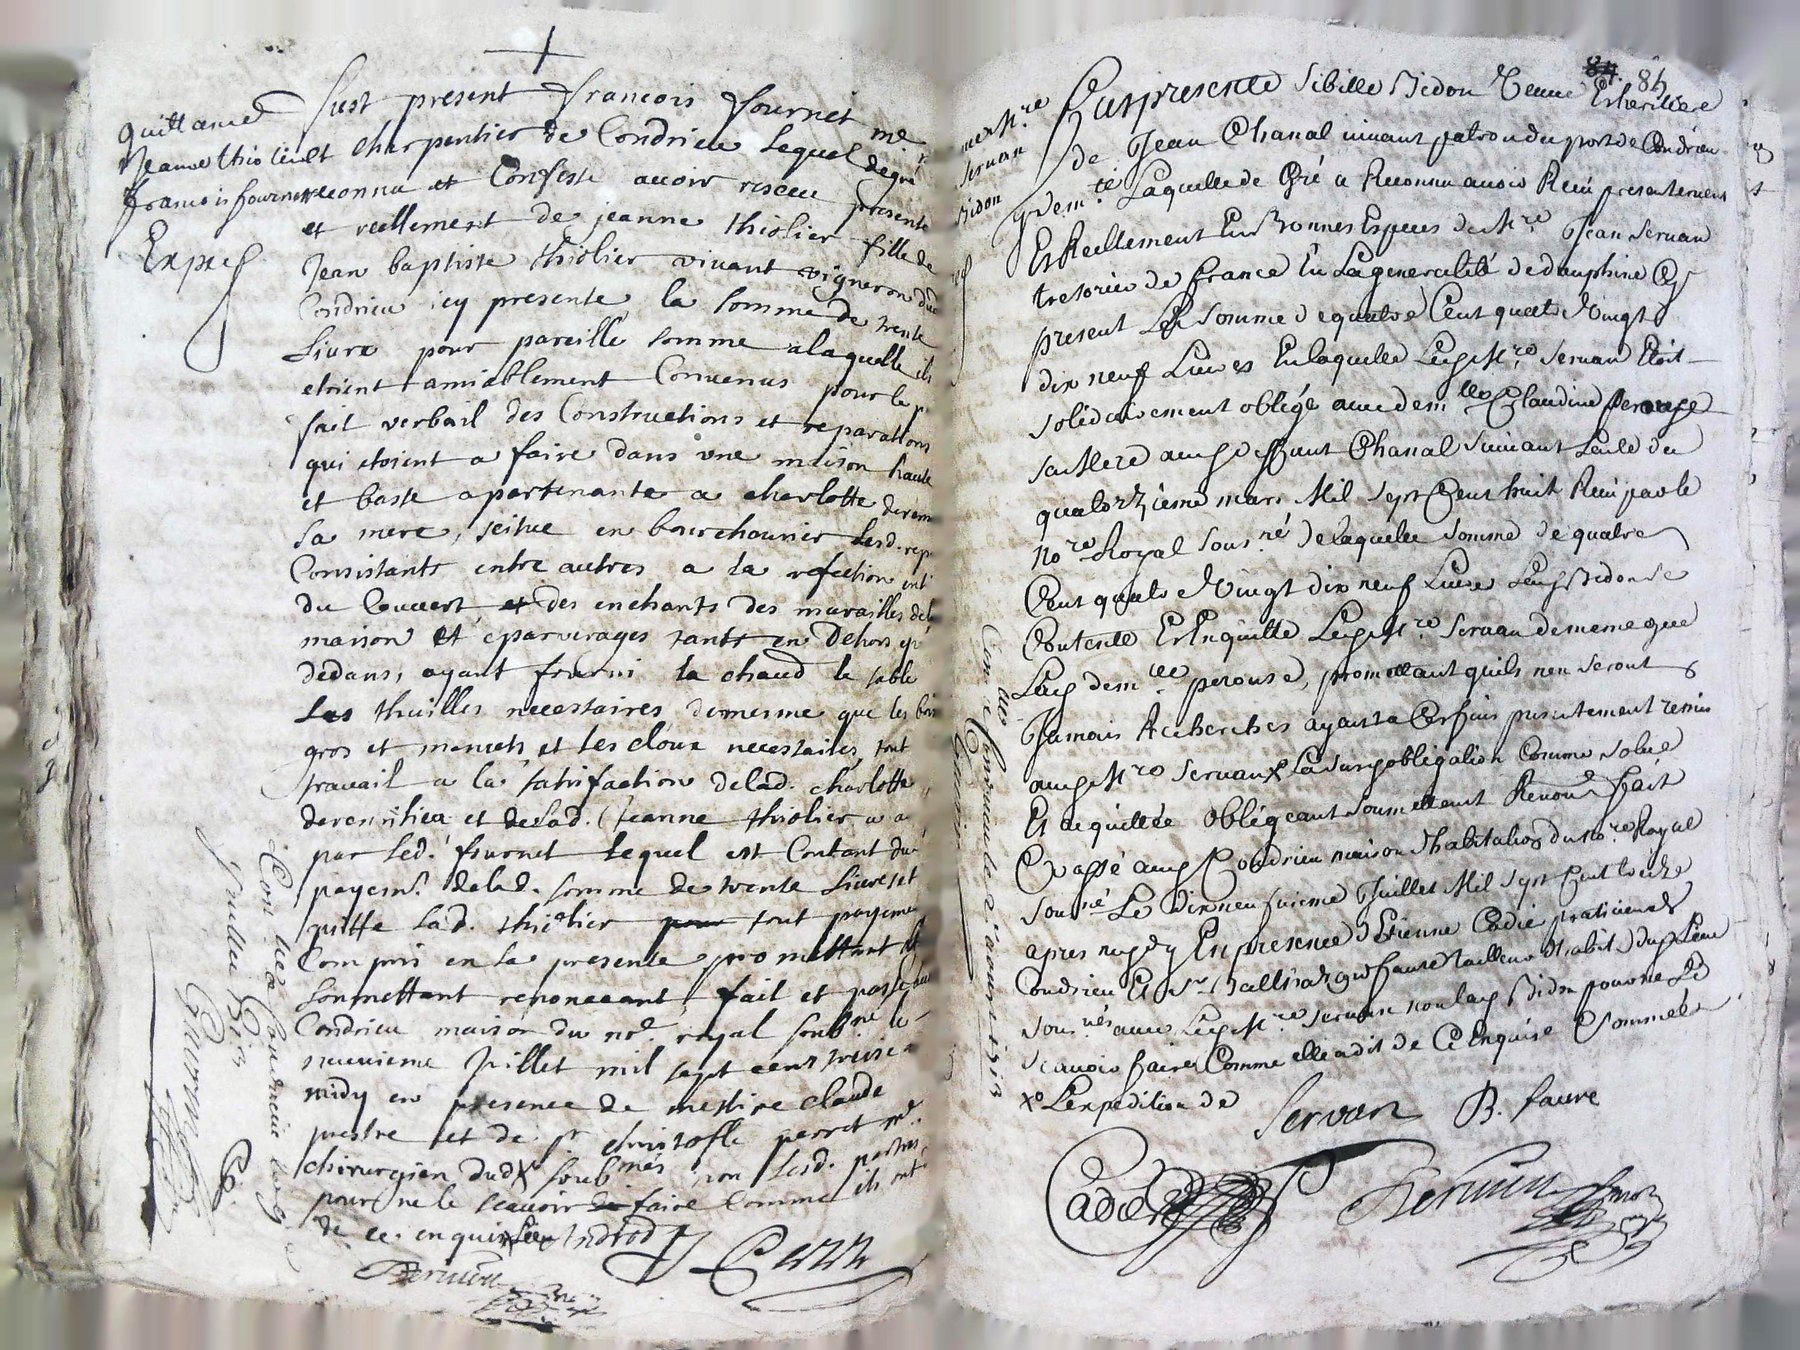 quittance
Jeanne thiolier et
francois fournet
Exp
fust present francois fournet me
charpentier de Condrieu lequel de gré
reconnu et Confesse avoir receu presente
et reellement de jeanne thiolier fille de
Jean baptiste thiolier vivant vigneron dud
Condrieu icy presente la somme de trente
Livre pour pareille somme a laquelle ils
etoient amiablement Convenus pour le p
fait verbail des Constructions et reparations
qui etoient a faire dans une maison haute
et basse apartenante a charlotte
sa mere, scitue en lesd. rep
Consistants entre autres a la refection
du Couvert et des enchants des murailles de la
maison et eparverages tants en dehors q
dedans, ayant fourni la chaud le sable
Les thuilles necessaires demesme que les bois
gros et menuets et les cloux necessaires, tout
travail a la satisfaction de lad. charlotte
et de lad. Jeanne thiolier
par led. fournet lequel est Contant du
payemt. de lad. somme de trente Livres et
quitte lad. thiolier pour tout payeme
Compris en la presente promettant
soumettant renonceant, fait et passé aud
Condrieu maison du nore. royal soubné le
neuvieme Juillet mil sept cent treise
midy en presence de messire claude
prestre et de sr. christofle perret me.
chirurgien dud X soubnés non lesd. parties
pour ne le scavoir faire Comme ils ont
de ce enquis
Con. lé a Condrieu le
Juillet 1713
84. 84
mer Mre
servan
Bidon
fust presente Sibille Bidon veuve Et heritiere
de Jean Chanal vivant patron du port de Condrieu
y demte Laquelle de Gré a Reconnu avoir Reçu presentement
Et Reellement En Bonnes Especes de Mre Jean Servan
tresorier de france En La generalité de dauphine Cy
present La somme de quatre Cent quatre Vingt
dix neuf Livres En laquelle Led. Mre Servan Etoit
solidairement obligé avec demlle Claudine perouse
sa Mere aud. deffunt Chanal suivant l'acte du
quatorzieme mars Mil Sept Cent huit Reçu par le
nore Royal sousné de laquelle somme de quatre
Cent quatre Vingt dix neuf Livre Lad. Bidon se
Contente Et En quitte Led. Mre Servan de meme que
Lad. demlle perouse, promettant quils nen seront
Jamais Recherches ayant a Ces fins presentement remis
aud. Mre Servan X La susd. obligation Comme solue
Et acquittée obligeant soumettant Renonct fait
Et passé aud. Condrieu maison d'habitation du nore Royal
sousné Le dixneufvieme Juillet Mil Sept Cent treize
apres midy En presence d'Etienne Cadié praticien de
Condrieu Et Sr. Balthazard faure tailleur d'habits dud. Lieu
sousnés avec Led. Mre Servan non lad. Bidon pour ne Le
scavoir faire Comme elle a dit de Ce Enquise Sommée
X L'expedition de
Servan
B. faure
Cadié
Con. lé a Condrieu le 2e aoust 1713